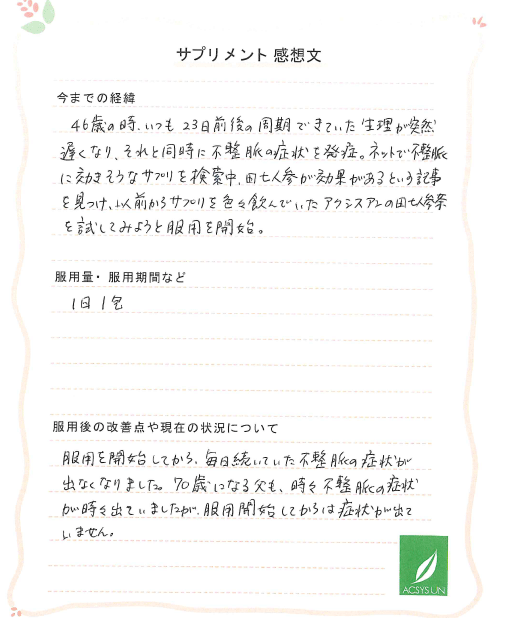 サプリメント 感想文
今までの経緯
46歳の時、いつも23日前後の周期できていた生理が突然
遅くなり、それと同時に不整脈の症状を発症。ネットで不整脈
に効きそうなサプリを検索中、田七人参が効果があるという記事
を見つけ、以前からサプリを色々飲んでいたアクシスアンの田七人参茶
を試してみようと服用を開始。
服用量・服用期間など
1日1包
服用後の改善点や現在の状況について
服用を開始してから、毎日続いていた不整脈の症状が
出なくなりました。70歳になる父も、時々不整脈の症状
が時々出ていましたが、服用開始してからは症状が出て
いません。
ACSYSUN